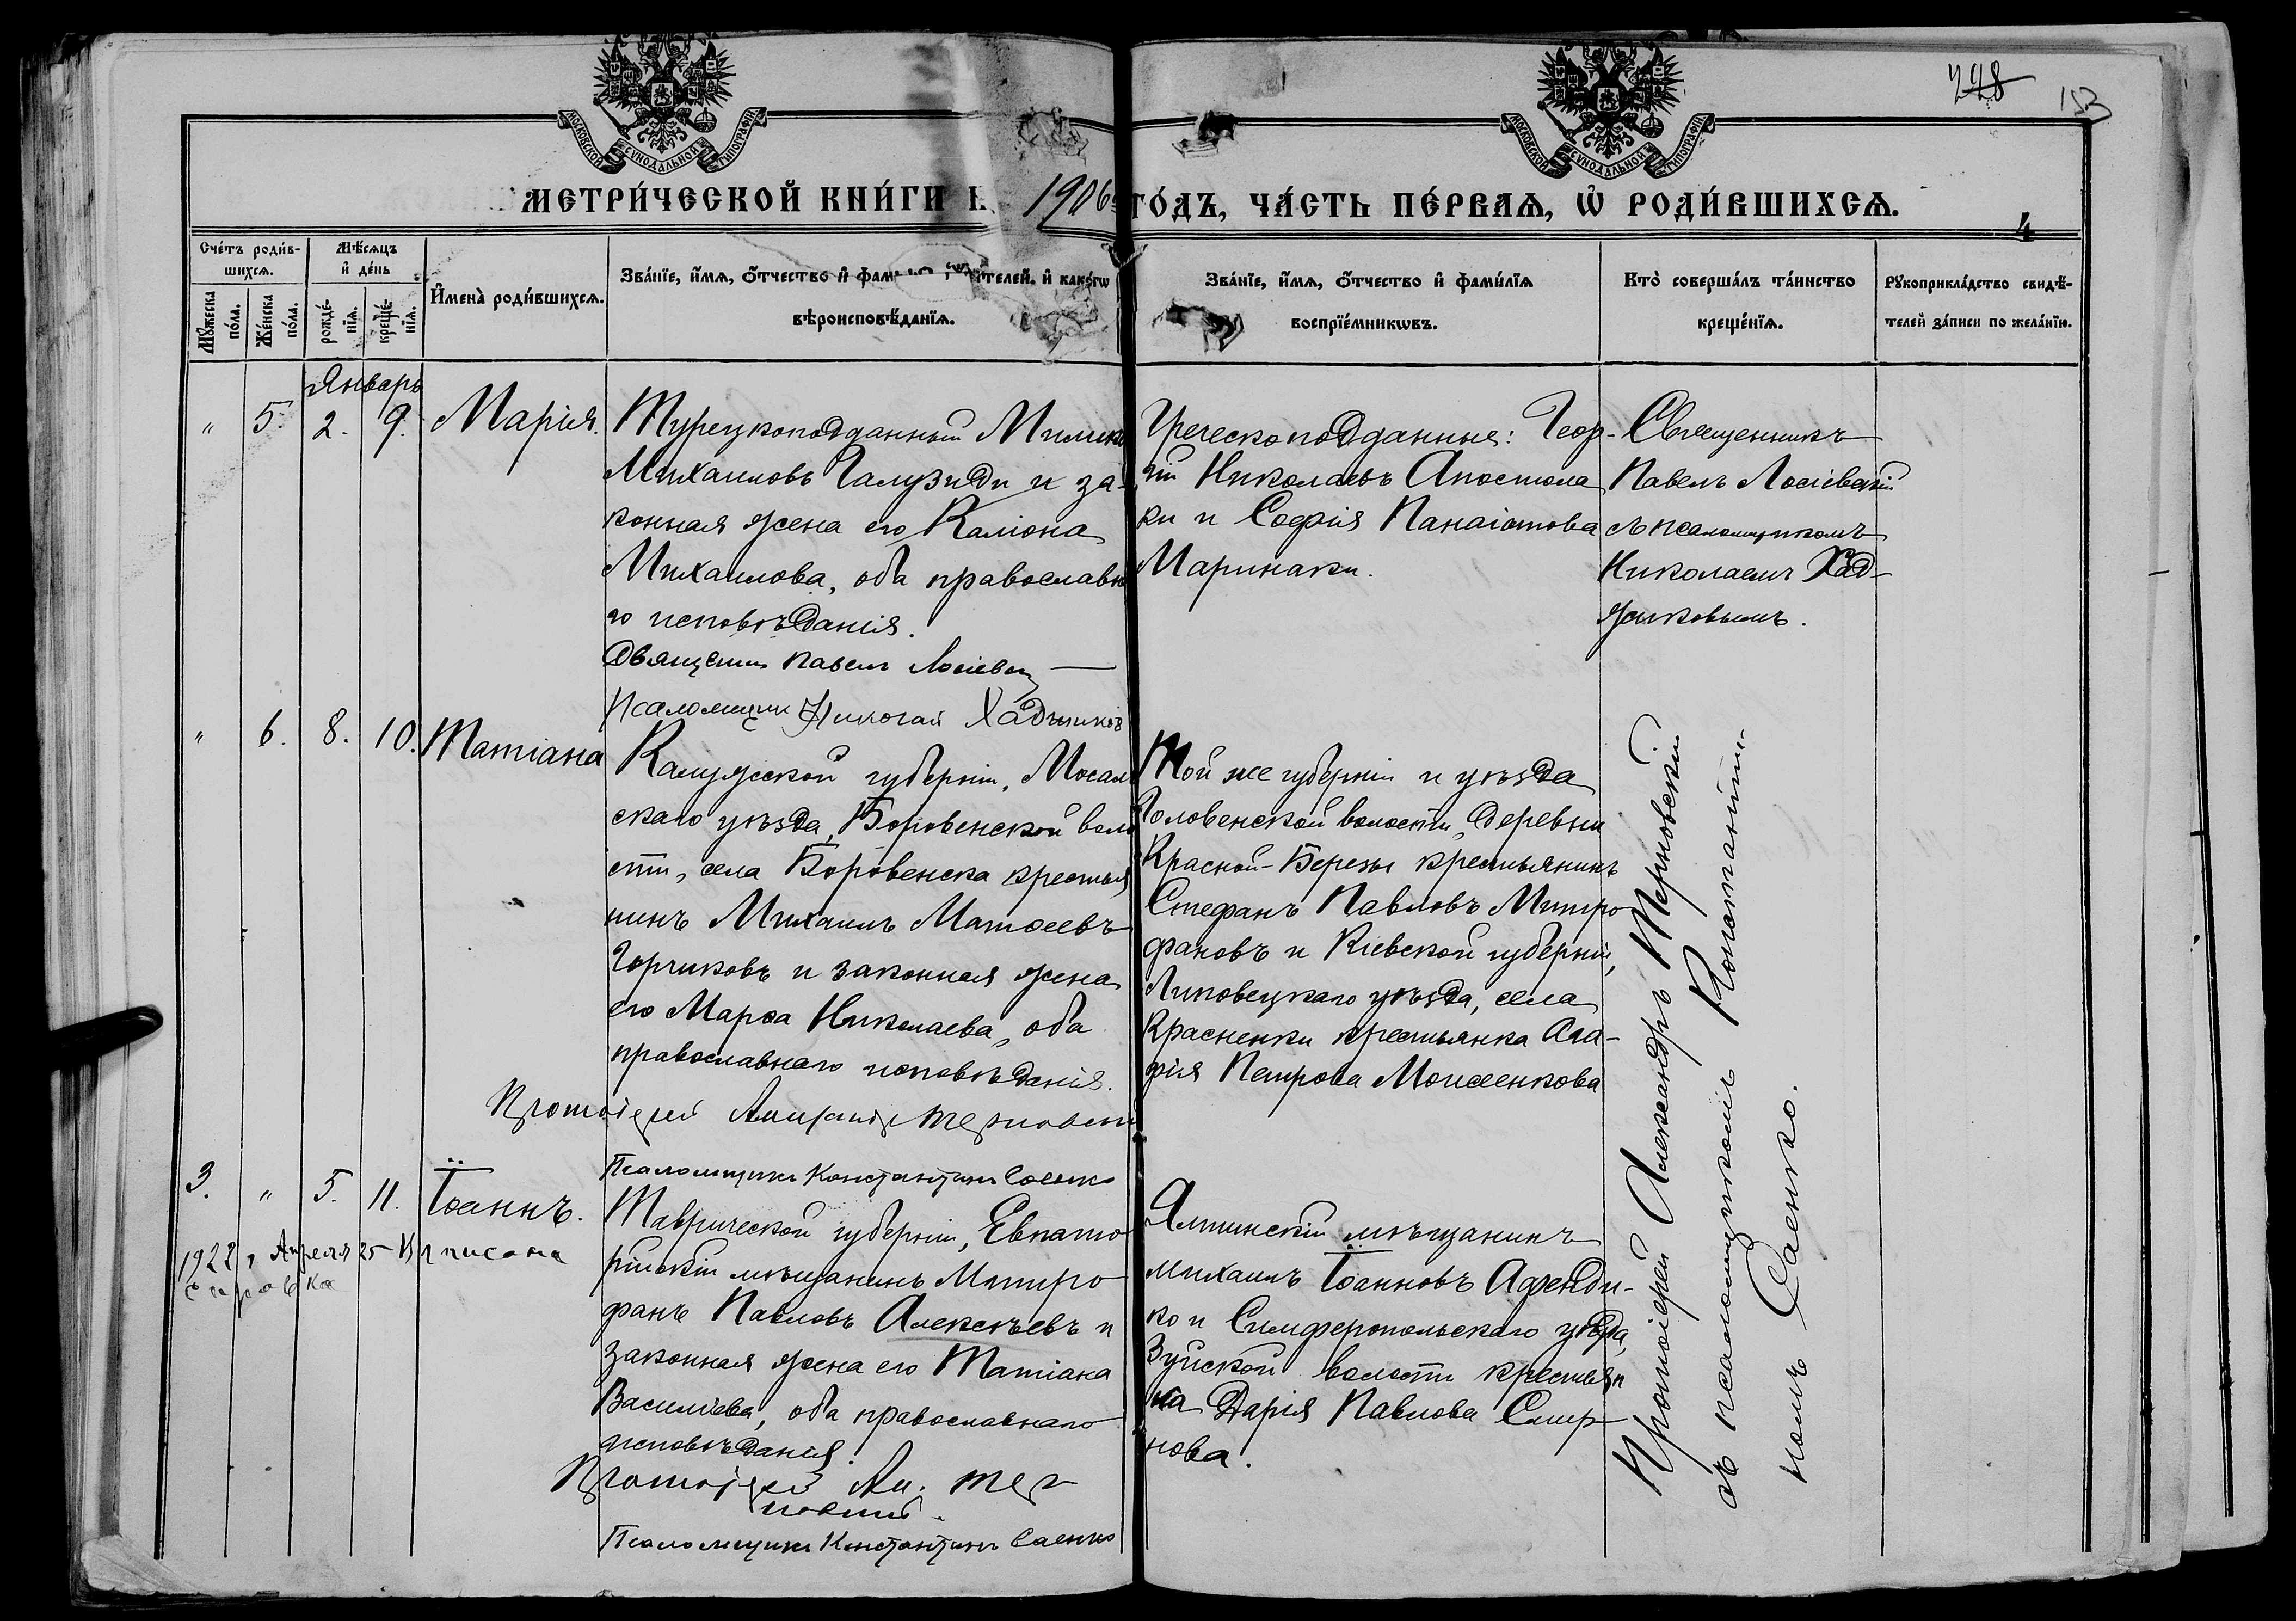 228
153
МОСКОВСКОЙ СУНОДАЛЬНОЙ ТИПОГРАФІИ
МОСКОВСКОЙ СУНОДАЛЬНОЙ ТИПОГРАФІИ
МЕТРИ́ЧЕСКОЙ КНИ́ГИ 1906 ГО́ДЪ, ЧА́СТЬ ПЕ́РВАѦ, Ѡ҆ РОДИ́ВШИХСѦ.
4
Сче́тъ роди́в-
шихсѧ.
Мꙋ́жеска
по́ла.
Же́нска
по́ла.
Мѣ́сѧцъ
и҆ де́нь
рожде́-
нїѧ.
креще́-
нїѧ.
И҆мена̀ роди́вшихсѧ.
Зва́нїе, и҆́мѧ, ѻ҆́тчество и҆ фам ителей. и҆ како́гѡ
вѣроисповѣ́данїѧ.
Зва́нїе, и҆́мѧ, ѻ҆́тчество и҆ фами́лїѧ
воспрїе́мникѡвъ.
Кто̀ соверша́лъ та́инство
креще́нїѧ.
Рꙋкоприкла́дство свидѣ́-
телей за́писи по жела́нїю.
Январь
" 5. 2. 9. Марія.
Турецкоподданный
Михаиловъ Галузиди и за-
конная жена его Каліопа
Михаилова, оба православна
го исповѣданія.
Священникъ Павелъ Лосіевскій
Псаломщик Николай Хаджиков
Греческоподданные: Геор-
гій Николаевъ Апостола
ки и Софія Панаіотова
Маринаки.
Священникъ
Павелъ Лосіевскій
съ псаломщикомъ
Николаемъ Хад-
жиковымъ.
" 6. 8. 10. Татіана
Калужской губерніи, Мосаль
скаго уѣзда, Боровенской воло
сти, села Боровенска крестья
нинъ Михаилъ Матѳеевъ
Горчиковъ и законная жена
его Марѳа Николаева, оба
православнаго исповѣданія.
Протоіерей Александръ Терновскій
Псаломщикъ Константинъ Саенко
Той же губерніи и уѣзда
Боловенской волости, деревни
Красной-Березы крестьянинъ
Стефанъ Павловъ Митро
фановъ и Кіевской губерніи,
Липовецкаго уѣзда, села
Красненки крестьянка Ага-
фія Петрова Моисеенкова
Протоіерей Александръ Терновскій
съ псаломщикомъ Константи-
номъ Саенко.
3. " 5. 11. Іоаннъ.
1922 г. Апреля 25 Выписана
справка
Таврической губерніи, Евпато
рійскій мѣщанинъ Митро
фанъ Павловъ Алексѣевъ и
законная жена его Татіана
Василіева, оба православнаго
исповѣданія.
Протоіерей Ал. Тер
новскій.
Псаломщикъ Константинъ Саенко
Ялтинскій мѣщанинъ
Михаилъ Іоанновъ Афенди-
ко и Симферопольскаго уѣзда,
Зуйской волости крестьян
ка Дарія Павлова Смир
нова.